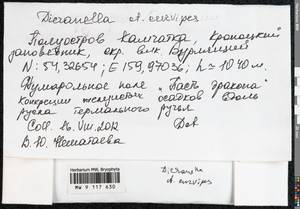 Dicranella cf. curvipes
Полуостров Камчатка, Кроноцкий
заповедник, окр. влк. Бурлящий
N: 54,32654; E 159,97036; h = 1040 м.
Фумарольное поле "Пасть дракона"
конкреции железистых осадков вдоль
русла термального ручья
Coll. 16. VIII. 2012 Det
В. Ю. Нешатаева
Herbarium MW, Bryophyta
MW 9 117 630
Dicranella
cf. curvipes